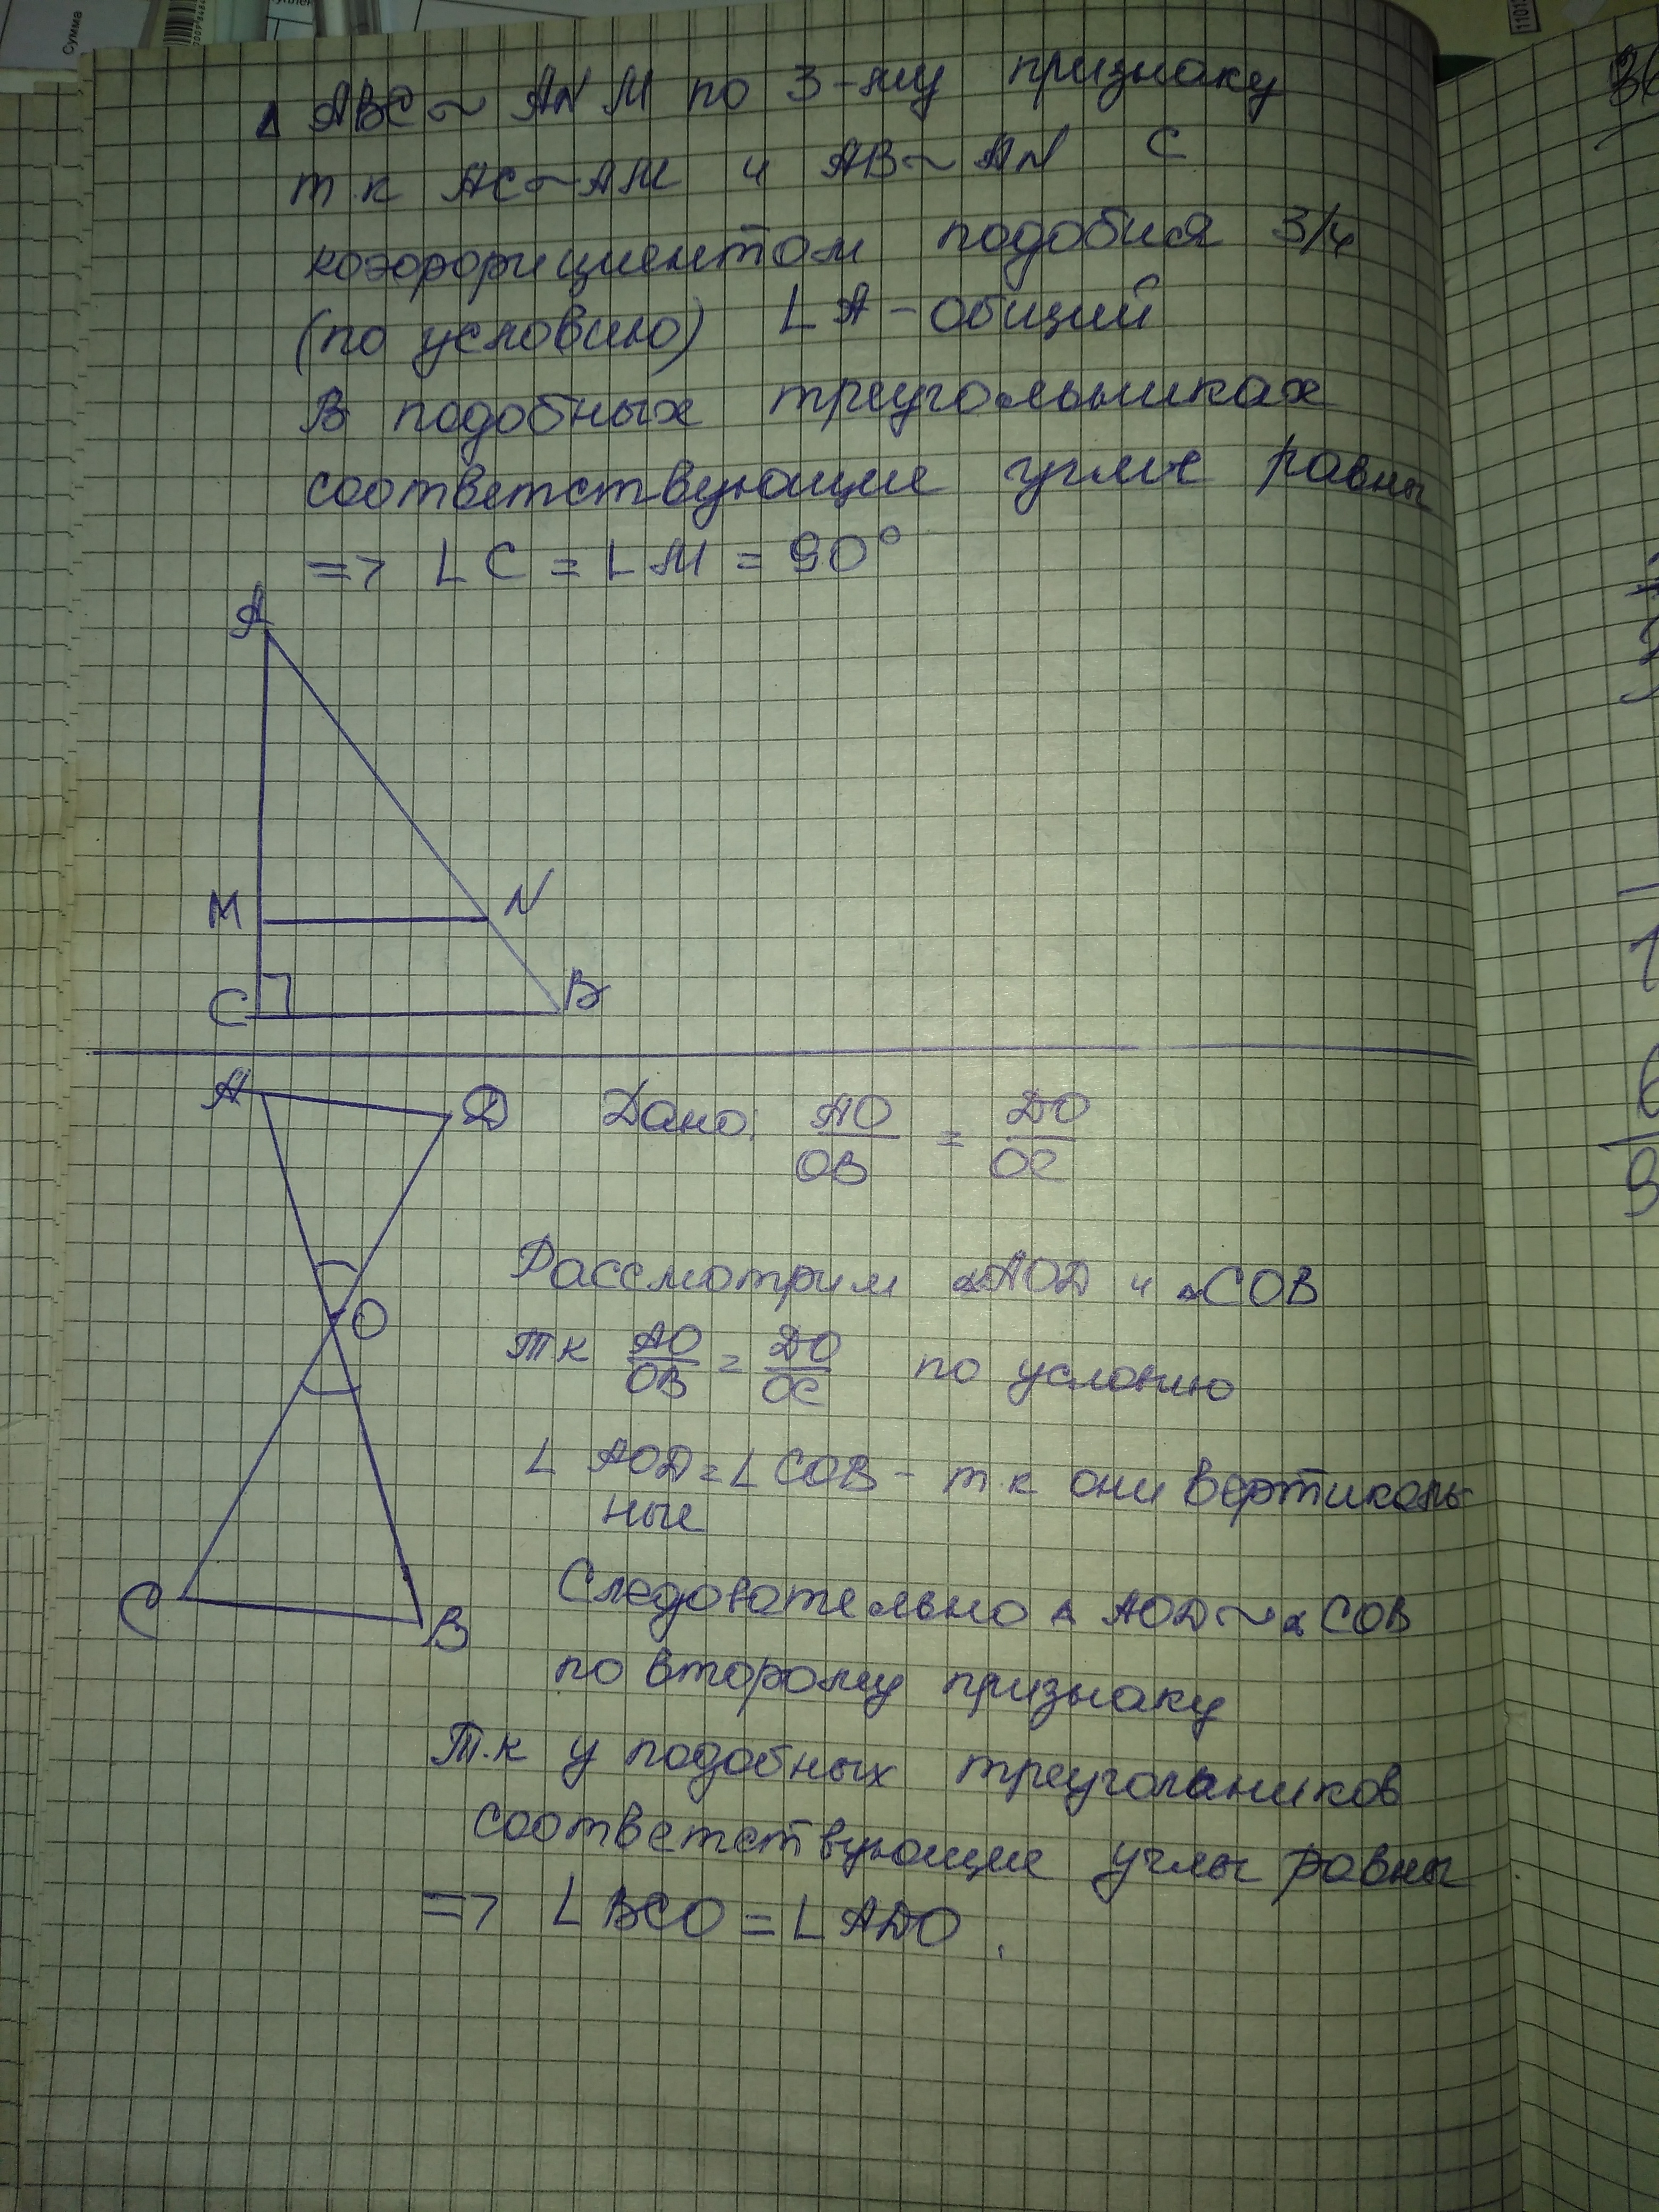 Сумма
Δ ABC ~ ANM по 3-му признаку
т.к AC~AM и AB~AN С
коэффициентом подобия 3/4
(по условию) ∟A - общий
В подобных треугольниках
соответствующие углы равны
=> ∟C = ∟M = 90°
A
M
N
C
B
A
D
Дано: AO/OB = DO/OC
Рассмотрим ΔAOD и ΔCOB
O
Тк AO/OB = DO/OC по условию
∟AOD = ∟COB - т.к они вертикаль
ные
C
B
Следовательно Δ AOD ~ Δ COB
по второму признаку
Т.к у подобных треуголаников
соответствующие углы равны
=> ∟BCO = ∟ADO.